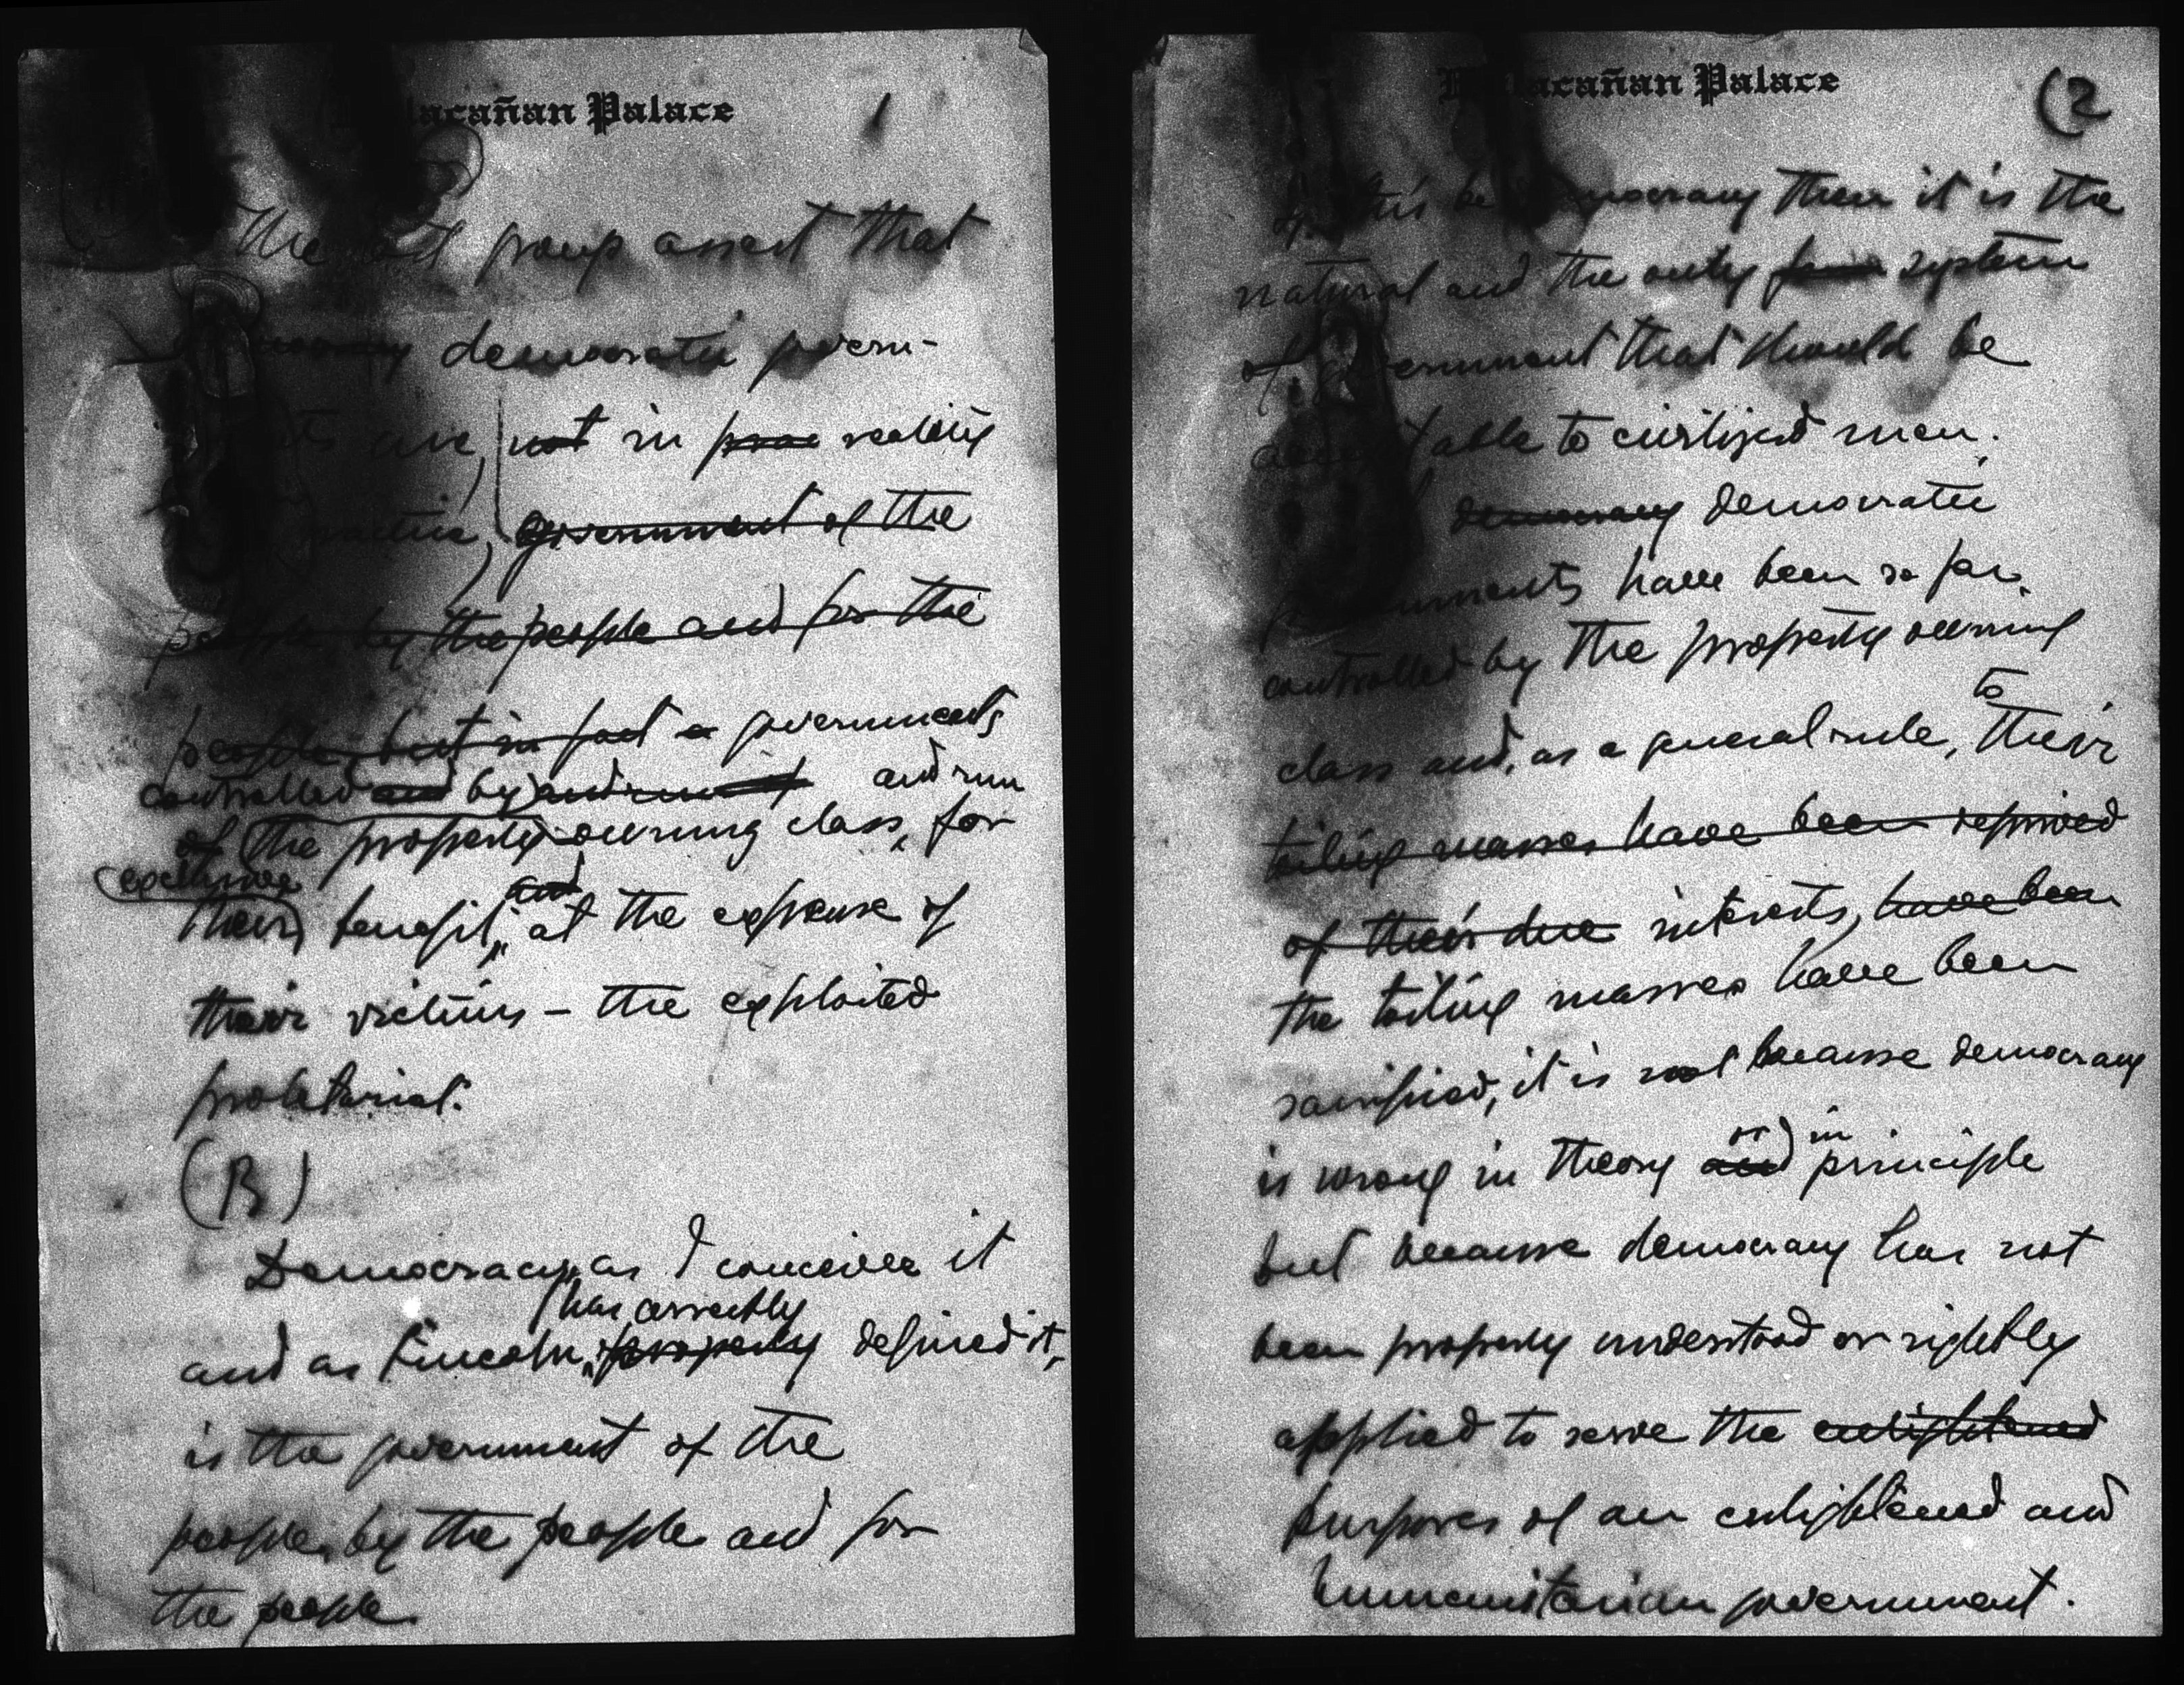 acañan Palace
1
The group assert that
democratic govern-
ts are, not in reality
government of the
people by the people and for the
people, but in fact a governments
controlled and by and run
of the property owning class, for
their benefit, and at the expense of
their victims – the exploited
proletariat.
(B)
Democracy, as I conceive it
has correctly
and as Lincoln, properly defined it,
is the government of the
people, by the people and for
the people.
acañan Palace
(2
this be democracy then it is the
natural and the only form system
of government that should be
table to civilized man.
democracy democratic
ments have been so far
controlled by the property owning
to
class and, as a general rule, their
toiling masses have been deprived
of their due interests, have been
the toiling masses have been
sacrificed, it is not because democracy
or in
is wrong in theory and principle
but because democracy has not
been properly understood or rightly
applied to serve the enlightened
purposes of an enlightened and
humanitarian government.